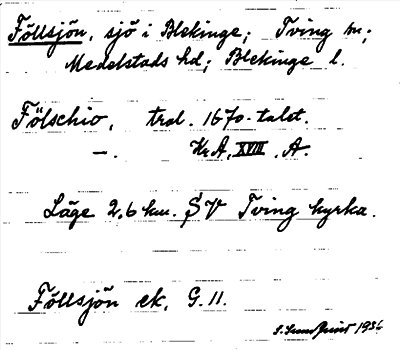 Föllsjön, sjö i Blekinge; Tving sn;
Medelstads hd; Blekinge l.
Fölschio, trol. 1670-talet.
—. Kr A, XVIII, A.
Läge 2,6 km. SV Tving kyrka.
Föllsjön ek. G. 11.
1936